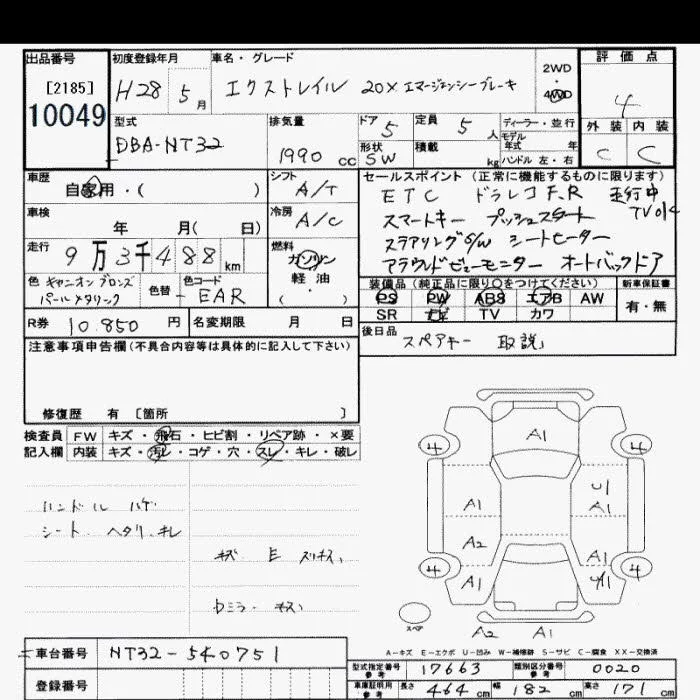 出品番号 初度登録年月 車名・グレード 評価点
[2185]
10049
H28 5月 エクストレイル 20X エマージェンシーブレーキ
2WD
・
4WD
4
型式 排気量 ドア 5 定員 5人 ディーラー・並行
モデル年式 年
外装 内装
DBA-NT32 1990 cc 形状 SW 積載 kg ハンドル 左・右
C C
車歴 シフト セールスポイント(正常に機能するものに限ります)
自家用・( ) A/T ETC ドラレコF.R 走行中
車検 年 月(日) 冷房 A/C スマートキー プッシュスタート
ステアリングS/W シートヒーター
走行 9万3千488km 燃料 ガソリン・軽油・( )
アラウンドビューモニター オートバックドア
色 キャニオンブロンズ
パールメタリック
色替 色コード EAR
装備品(純正品に限り○をつけてください) 新車保証書
PS PW ABS エアB AW
有・無
SR ナビ TV カワ
R券 10.850円 名変期限 月 日
後日品 スペアキー 取説
注意事項申告欄(不具合内容等は具体的に記入して下さい)
修復歴 有 [箇所 ]
検査員 FW キズ・飛石・ヒビ割・リペア跡・×要
記入欄 内装 キズ・汚レ・コゲ・穴・スレ・キレ・破レ
ハンドル ハゲ
シート ヘタリ.キレ
キズ E スリキズ
A1
4 4
A1 U1
A1
A2 A1
4 4
A1
スペア
A2 A1
A-キズ E-エクボ U-凹み W-補修跡 S-サビ C-腐食 XX-交換済
車台番号 NT32-540751
型式指定番号 参考 17663 類別区分番号 参考 0020
登録番号
車庫証明用 参考 長さ 464cm 幅 182cm 高さ 171cm